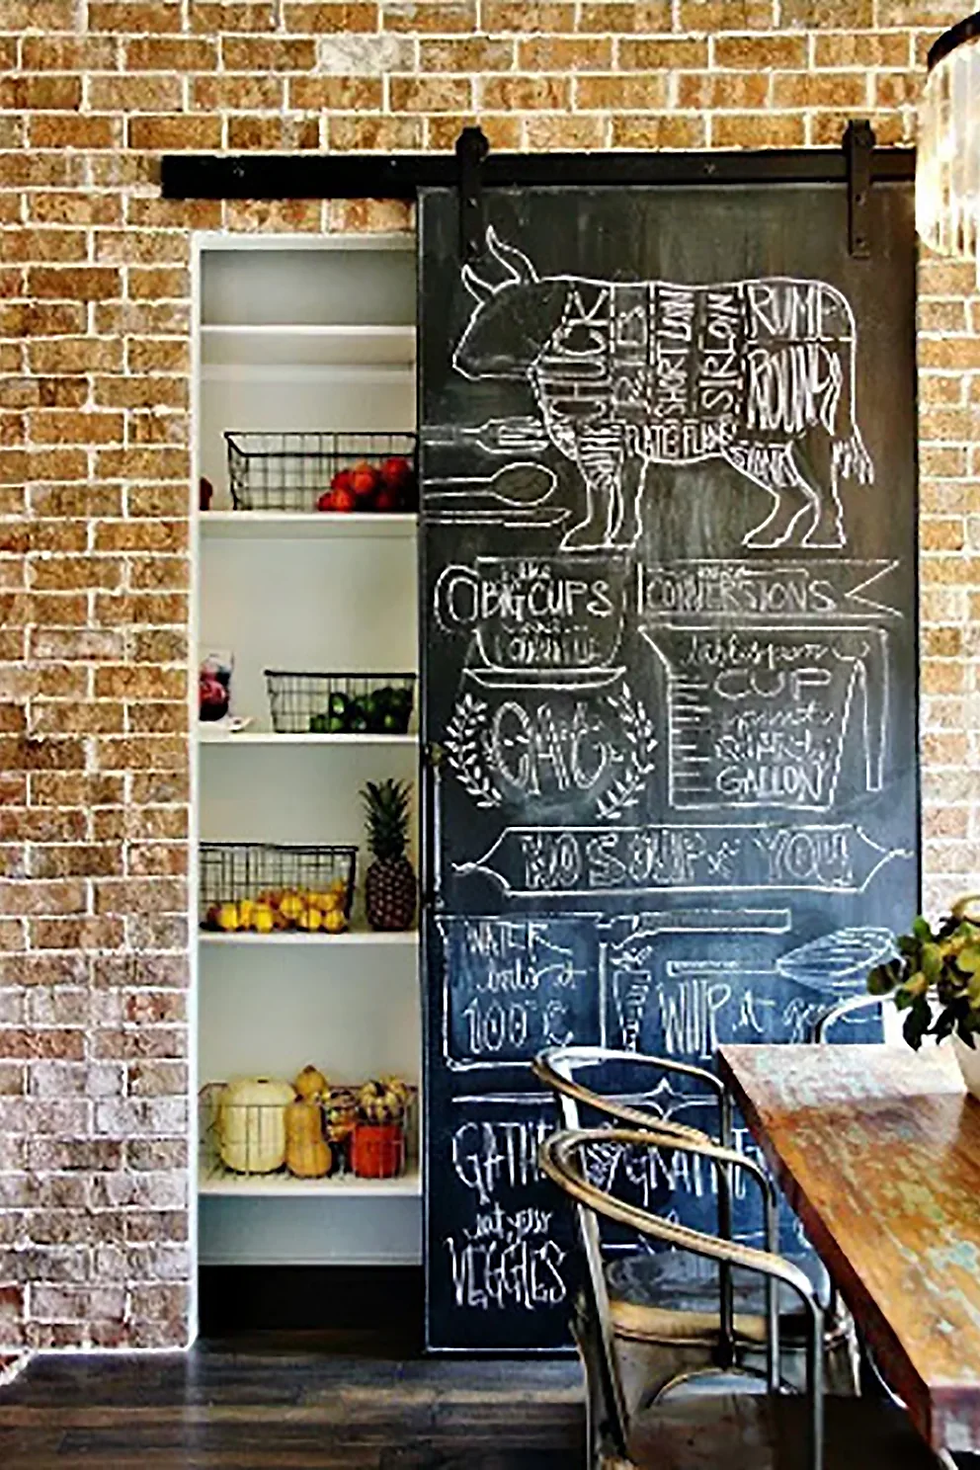 CHUCK RIB SHORT LOIN SIRLOIN RUMP
ROUND
PLATE FLANK
SHANK
BIG CUPS
CONVERSIONS
tablespoon
CUP
GALLON
NO SOUP for YOU
WATER
boils at
100°C
WHIP it good
GATH GRAT
eat your
VEGGIES